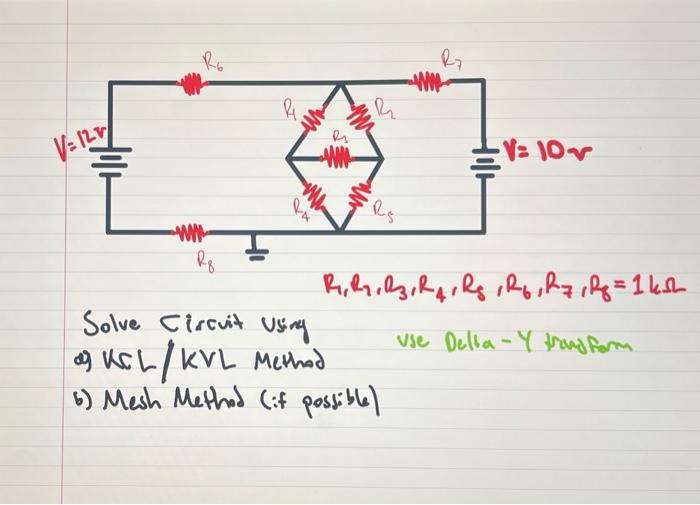 R6
R7
V=12v
R1
R2
R3
V=10v
R4
R5
R8
R1,R2,R3,R4,R5,R6,R7,R8=1kΩ
Solve Circuit Using
a) KCL/KVL Method
b) Mesh Method (if possible)
Use Delta-Y transform